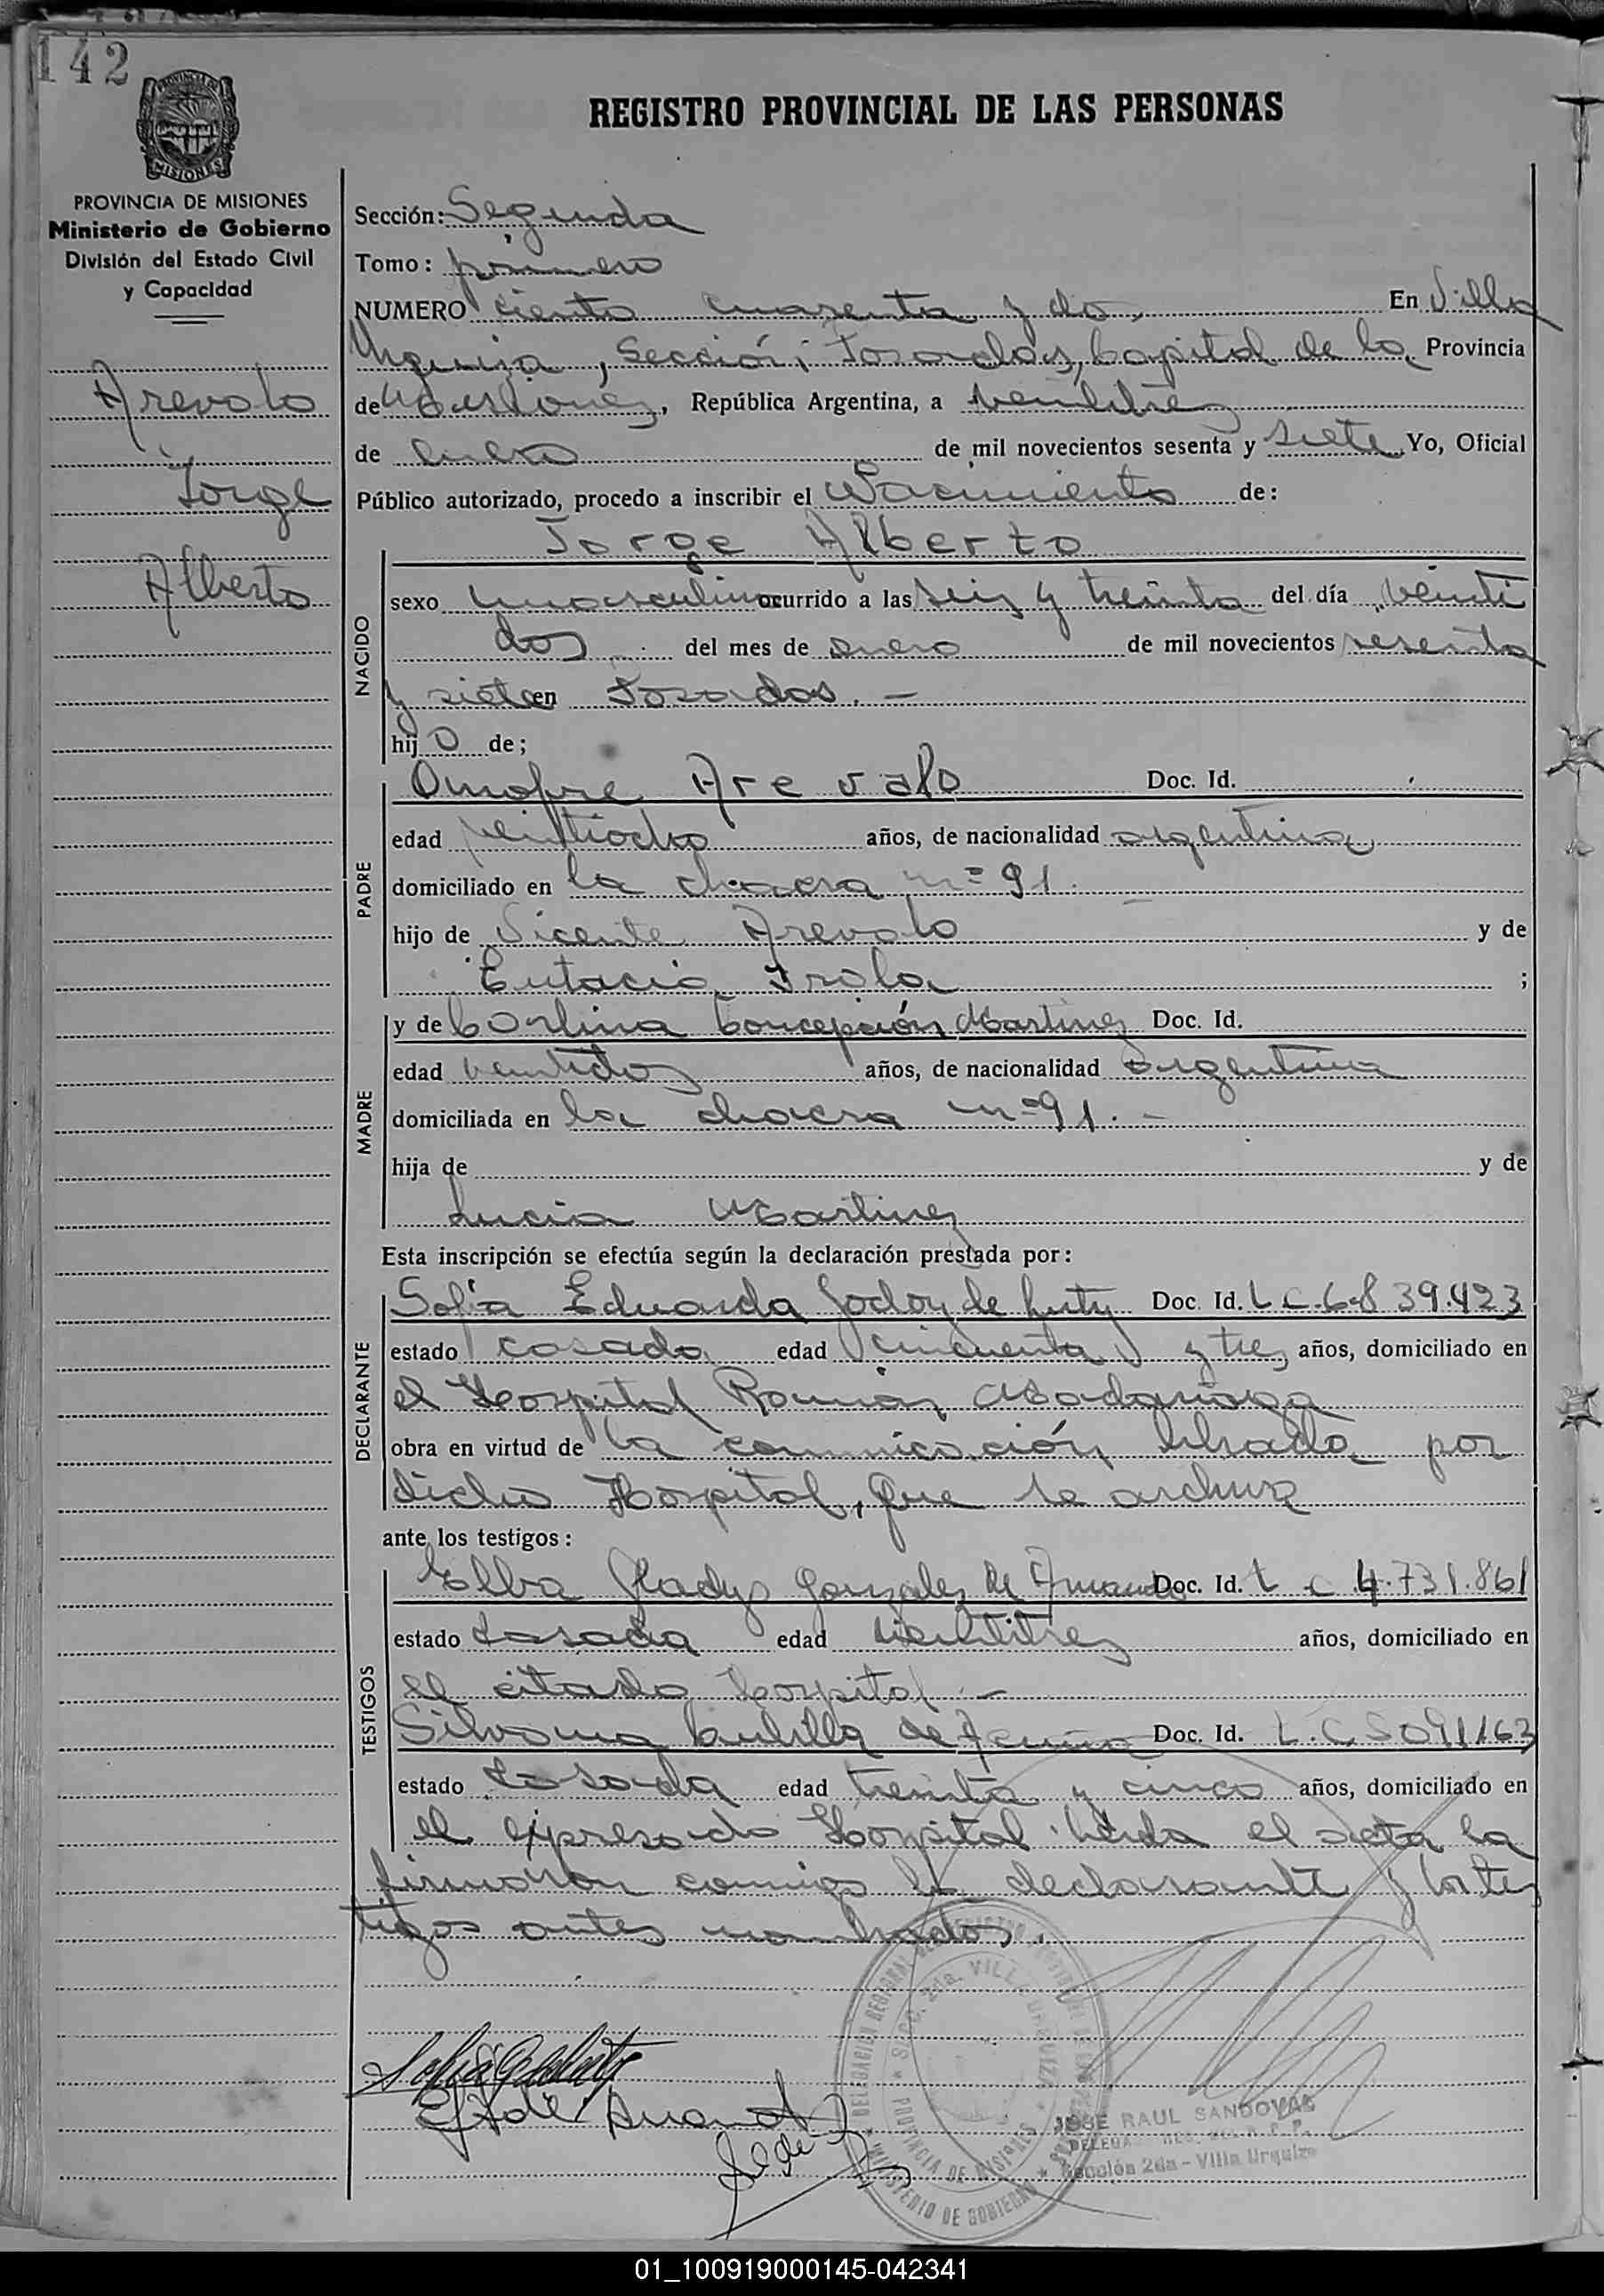 142
REGISTRO PROVINCIAL DE LAS PERSONAS
PROVINCIA DE MISIONES
Ministerio de Gobierno
División del Estado Civil
y Capacidad
Arevalo
Jorge
Alberto
Sección: Segunda
Tomo: primero
NUMERO ciento cuarenta y dos, En Villa
Urquiza, Sección; Posadas, Capital de la Provincia
de Misiones, República Argentina, a veintitres
de enero de mil novecientos sesenta y siete Yo, Oficial
Público autorizado, procedo a inscribir el Nacimiento de:
Jorge Alberto
NACIDO
sexo masculino ocurrido a las seis y treinta del día veinti
dos del mes de enero de mil novecientos sesenta
y siete en Posadas. -
hij o de;
PADRE
Onofre Arevalo Doc. Id.
edad veintiocho años, de nacionalidad argentina
domiciliado en la chacra nº 91.
hijo de Vicente Arevalo y de
Eutacia Irala ;
MADRE
y de Corlina Concepción Martinez Doc. Id.
edad ventidos años, de nacionalidad argentina
domiciliada en la chacra nº 91. -
hija de y de
Lucia Martinez
Esta inscripción se efectúa según la declaración prestada por:
DECLARANTE
Sofia Eduarda Godoy de Doc. Id. L C. 6.839.423
estado casada edad cincuenta y tres años, domiciliado en
el Hospital Ramón Madariaga
obra en virtud de la comunicación librada por
dicho Hospital, que se archiva
ante los testigos:
TESTIGOS
Elba Gladys Gonzalez de Doc. Id. L C 4.731.861
estado casada edad veintitres años, domiciliado en
el citado hospital. -
Silvana de Doc. Id. L.C 5091163
estado casada edad treinta y cinco años, domiciliado en
el expresado Hospital. Leída el acta la
firmaron conmigo la declarante y los tes
tigos antes nombrados.
SECC. 2da. VILLA URQUIZA
PROVINCIA DE MISIONES
MINISTERIO DE GOBIERNO
JOSE RAUL SANDOVAL
Sección 2da - Villa Urquiza
01_100919000145-042341